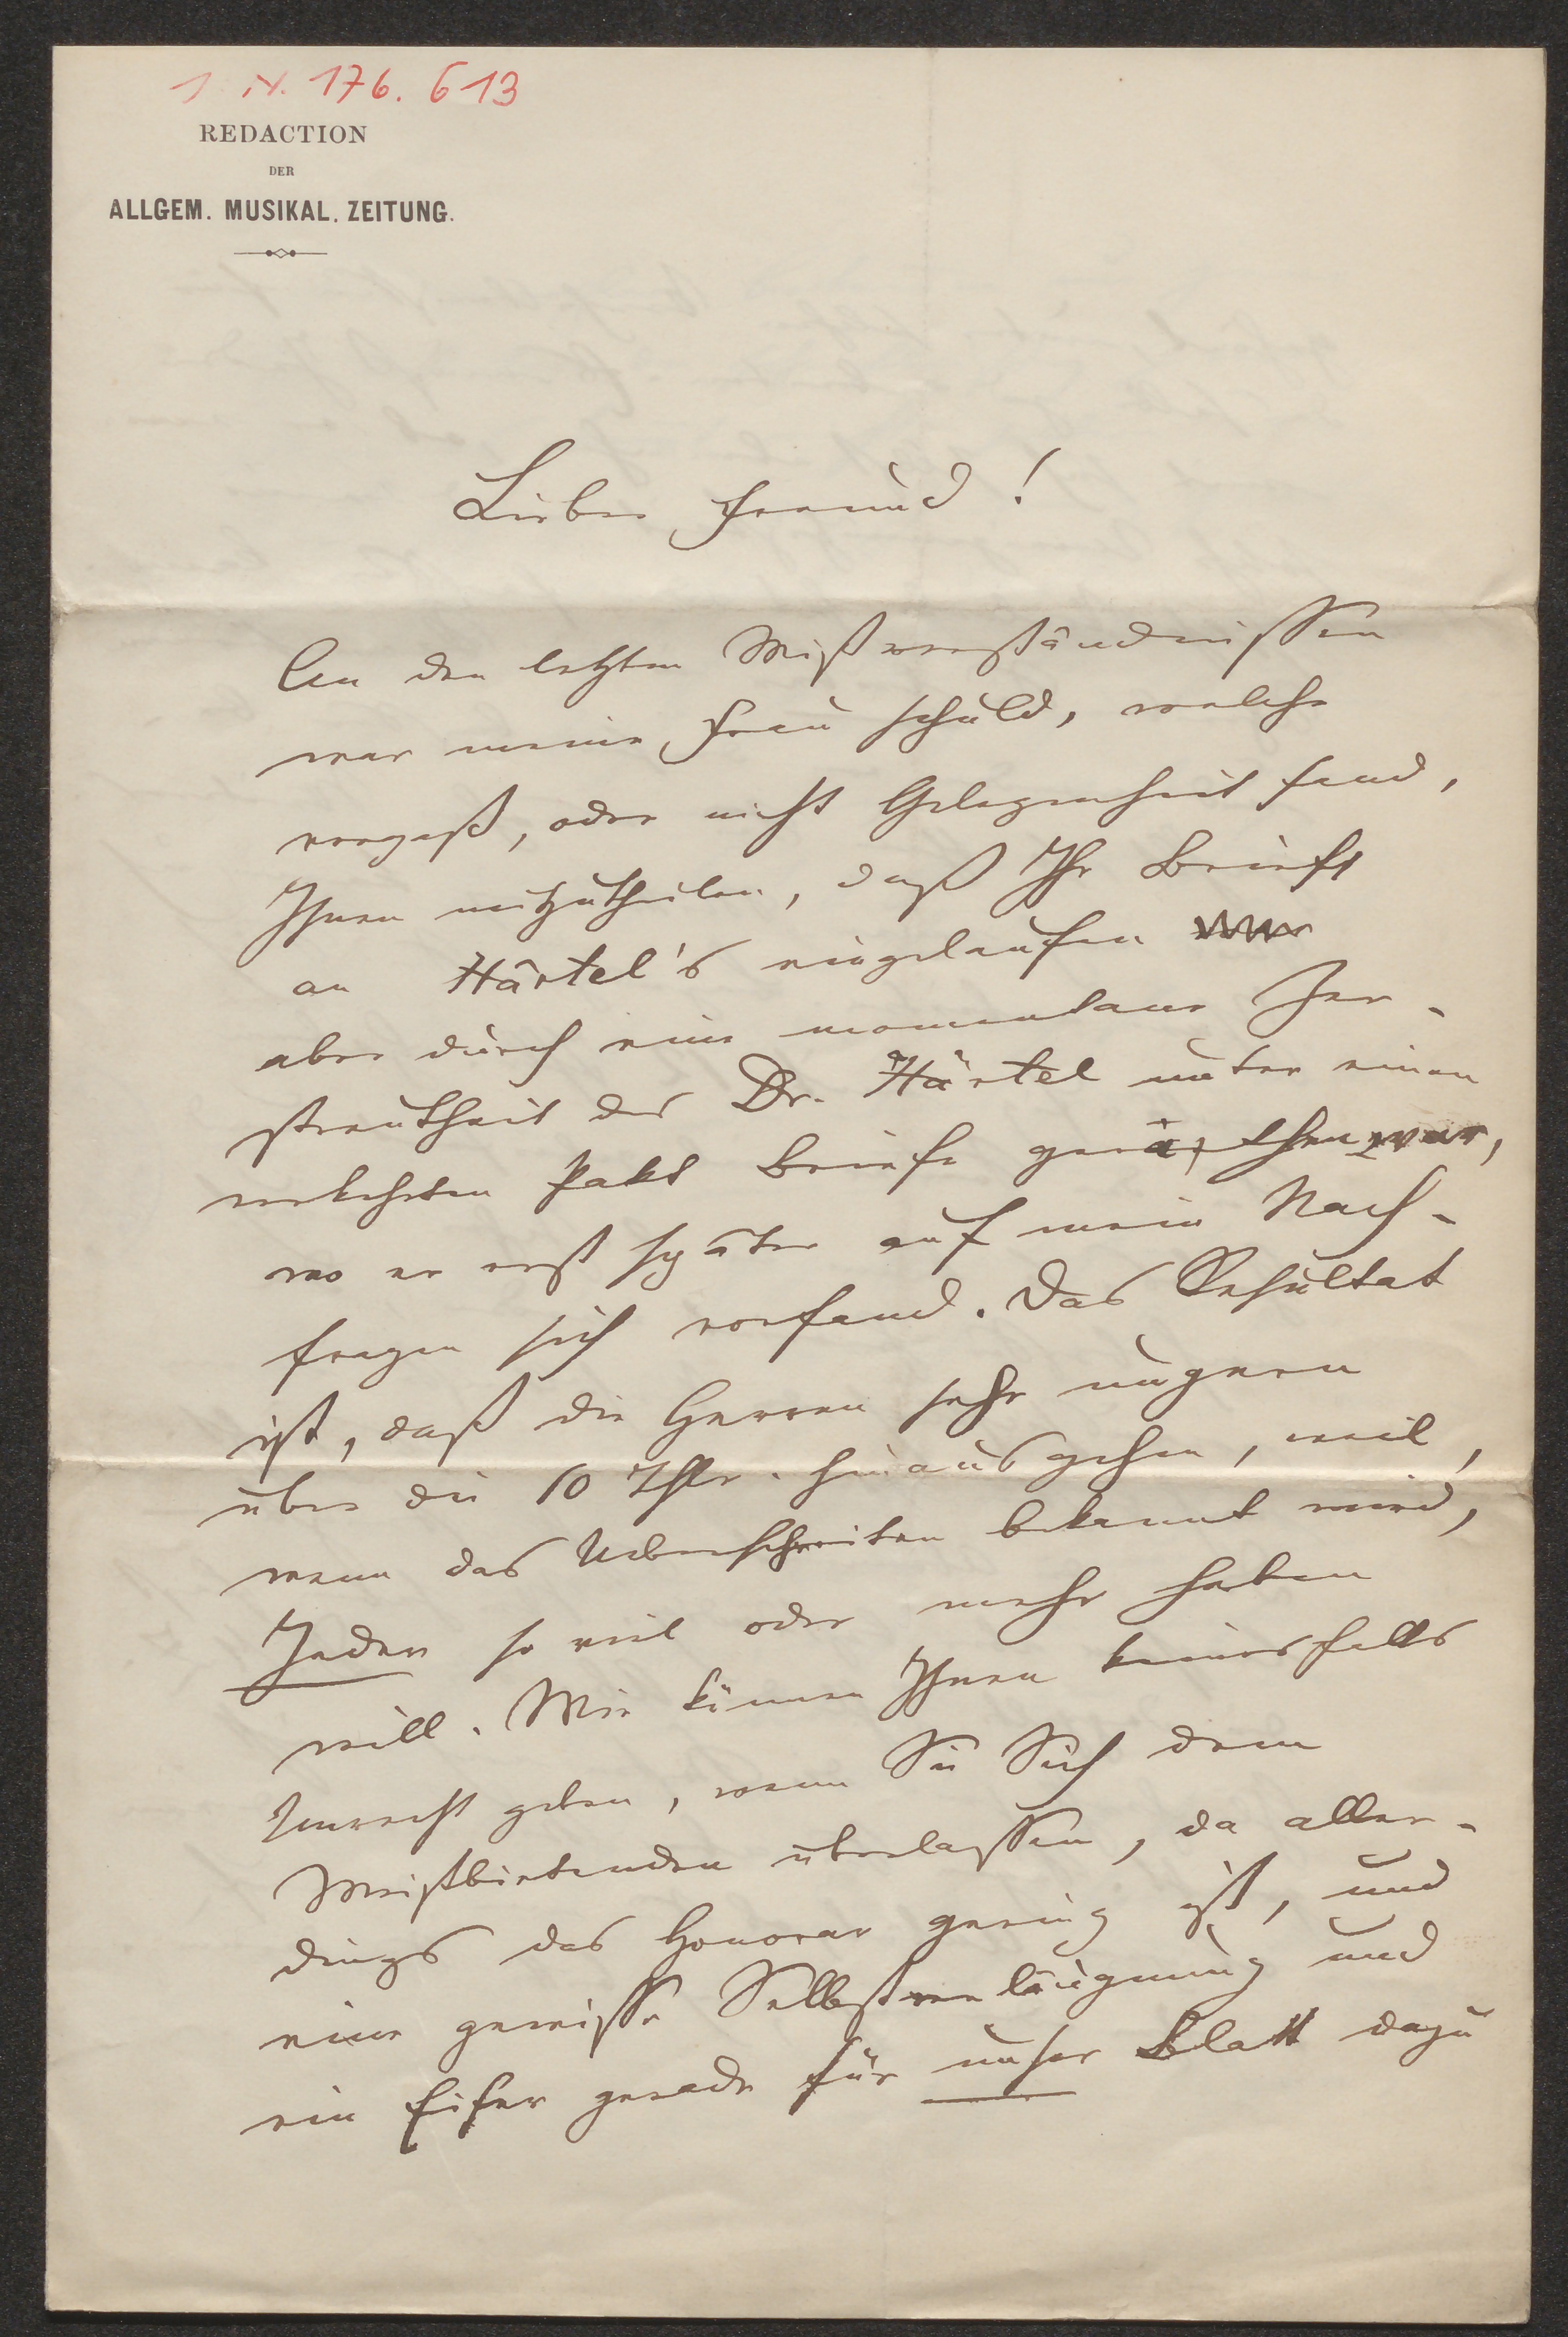 I. N. 176.613
REDACTION
DER
ALLGEM. MUSIKAL. ZEITUNG.
Lieber Freund!
An den letzten Mißverständnissen
war meine Frau schuld, welche
vergaß, oder nicht Gelegenheit fand,
Ihnen mitzutheilen, daß Ihr Brief
an Härtel's eingelaufen
aber durch eine momentane Zer-
streutheit des Dr. Härtel unter einen
verkehrten Pakt Briefe gerathen war,
wo er erst später auf mein Nach-
fragen sich vorfand. Das Resultat
ist, daß die Herren sehr ungern
über die 10 Thlr. hinausgehen, weil,
wenn das Ueberschreiten bekannt wird,
Jeder so viel oder mehr haben
will. Wir können Ihnen keinesfalls
Unrecht geben, wenn Sie Sich dem
Meistbietenden überlassen, da aller-
dings das Honorar gering ist, und
eine gewisse Selbstverläugnung und
ein Eifer gerade für unser Blatt dazu